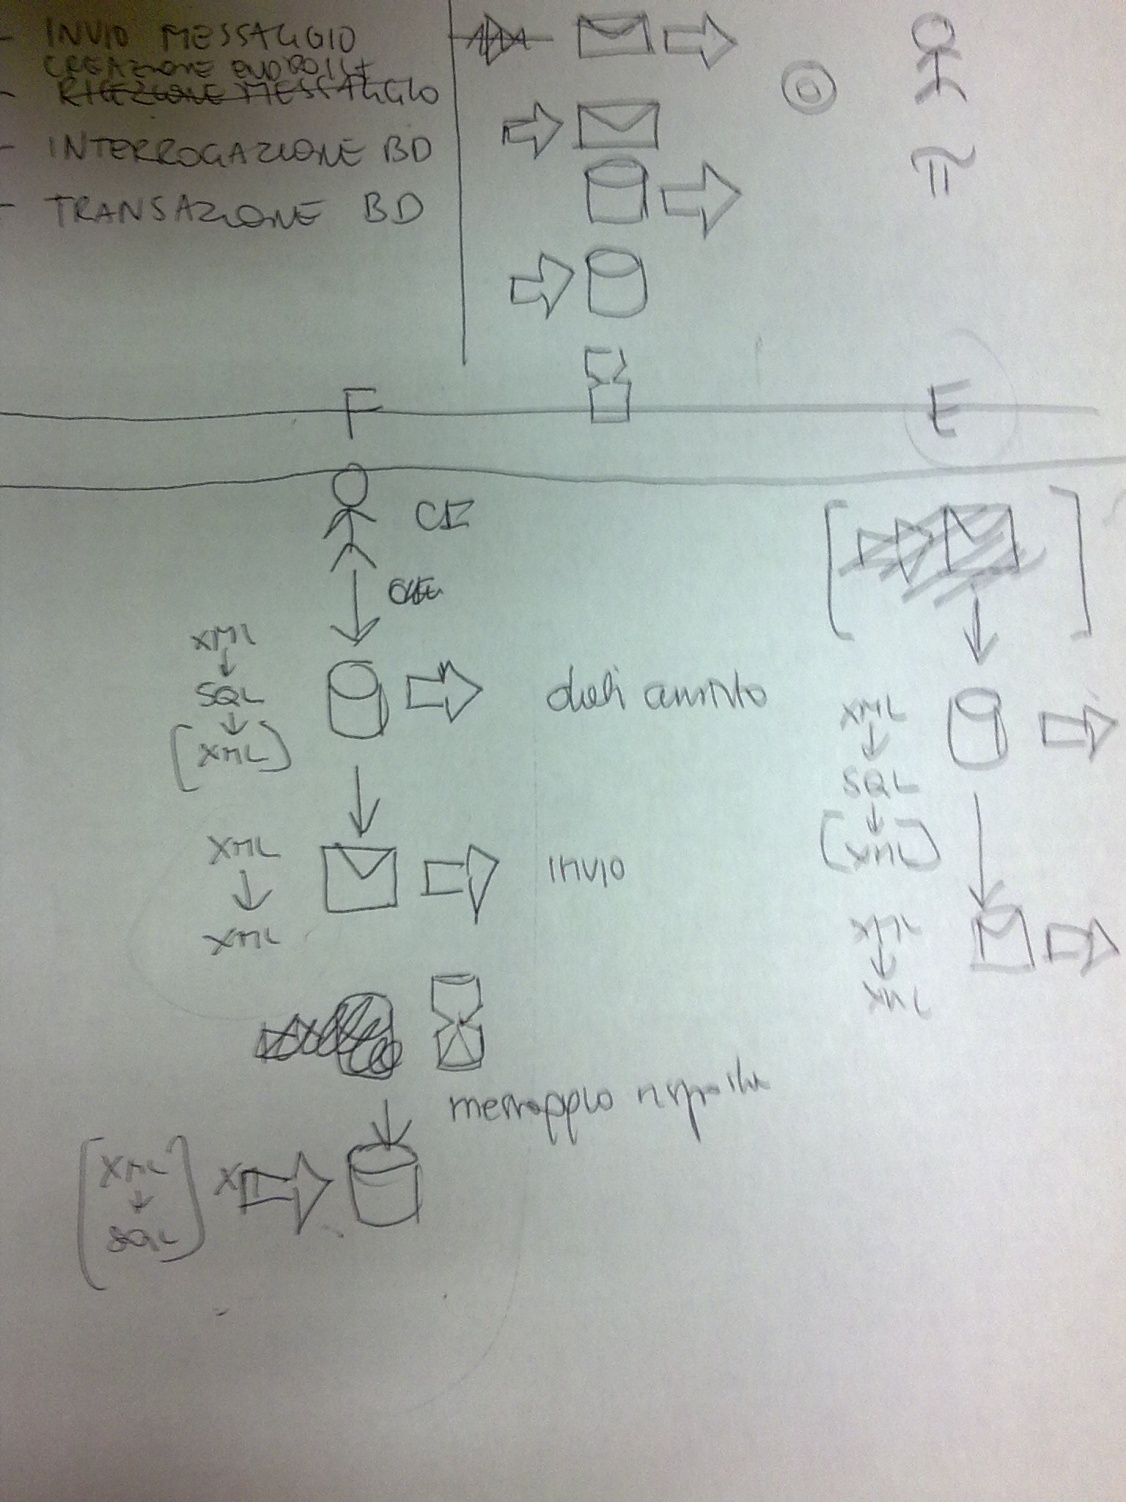 - INVIO MESSAGGIO
CREAZIONE ENDPOINT
- RICEZIONE MESSAGGIO
- INTERROGAZIONE BD
- TRANSAZIONE BD
F
E
XML
SQL
[XML]
XML
XML
INVIO
messaggio risposta
[XML
SQL]
XML
SQL
[XML]
XML
XML